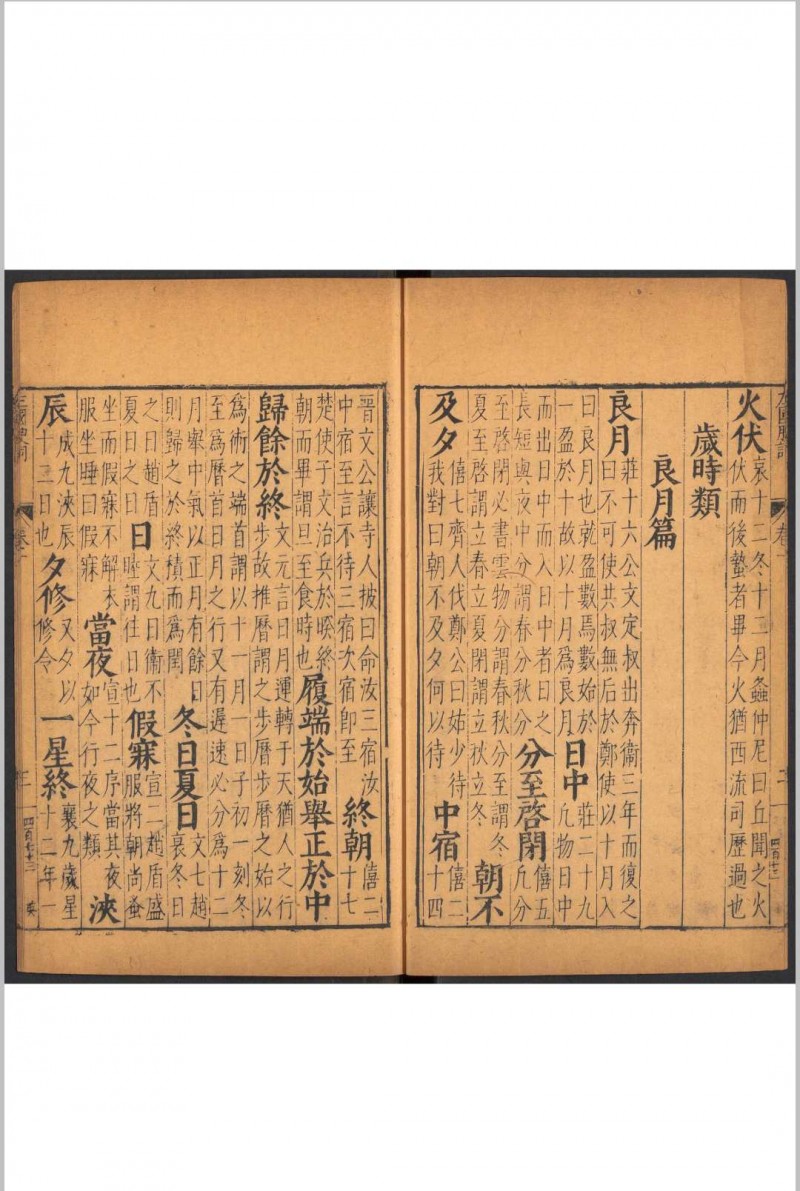 火伏
哀十二冬十二月螽仲尼曰丘聞之火
伏而後蟄者畢今火猶西流司歷過也
歲時類
良月篇
良月
莊十六公文定叔出奔衛三年而復之
曰不可使共叔無后於鄭使以十月入
曰良月也就盈數焉數始於
一盈於十故以十月爲良月
日中
莊二十九
凡物日中
而出日中而入日中者日之
長短與夜中分謂春分秋分
分至啓閉
僖五
凡分
至啓閉必書雲物分謂春秋分至謂冬
夏至啓謂立春立夏閉謂立秋立冬
朝不
及夕
僖七齊人伐鄭公曰姑少待
我對曰朝不及夕何以待
中宿
僖二
十四
晉文公讓寺人披曰命汝三宿汝
中宿至言不待三宿次宿卽至
終朝
僖二
十七
楚使子文治兵於暌終
朝而畢謂旦至食時也
履端於始舉正於中
歸餘於終
文元言日月運轉于天猶人之行
步故推曆謂之步曆步曆之始以
爲術之端首謂以十一月一日子初一刻冬
至爲曆首日月之行又有遲速必分爲十二
月舉中氣以正月有餘日
則歸之於終積而爲閏
冬日夏日
文七趙
衰冬日
之日趙盾
夏日之日
日
文九日衞不
謂往日也
假寐
宣二趙盾盛
服將朝尚蚤
坐而假寐不解衣
服坐睡曰假寐
當夜
宣十二序當其夜
如今行夜之類
浹
辰
成九浹辰
十二日也
夕修
又夕以
修令
一星終
襄九歲星
十二年一
卷一
四百七十三